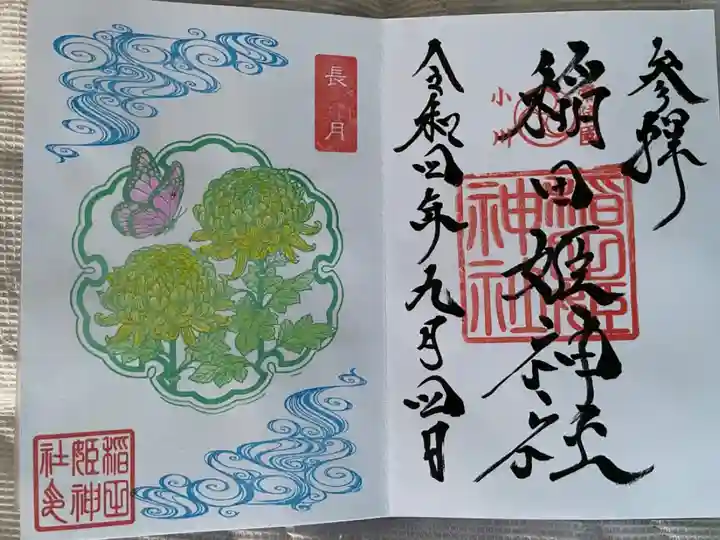 参拝
稲田姫神社
小川
稲田姫
神社
令和四年九月四日
長月
稲田
姫神
社印